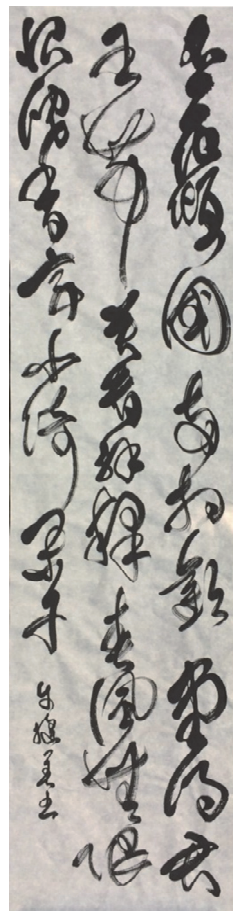 名花傾國兩相歡常得君
王帶笑看解釋春風無限
恨沉香亭北倚闌干